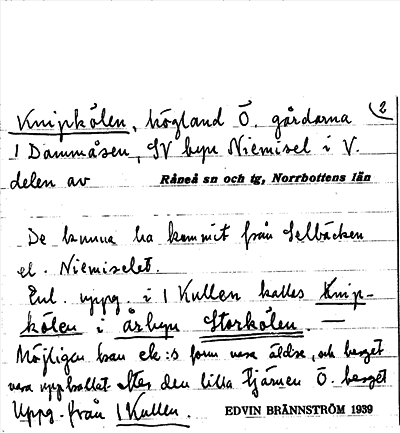 Knipkölen, högland Ö. gårdarna 2
1 Dammåsen, SV byn Niemisel i V.
delen av Råneå sn och tg, Norrbottens län
De kunna ha kommit från Selbäcken
el. Niemiselet.
Enl. uppg. i 1 Kullen kallas Knip-
kölen i åsbyn Storkölen. —
Möjligen kan ek:s form vara äldre, och berget
vara uppkallat efter den lilla tjärnen Ö. berget
Uppg. från 1 Kullen. EDVIN BRÄNNSTRÖM 1939